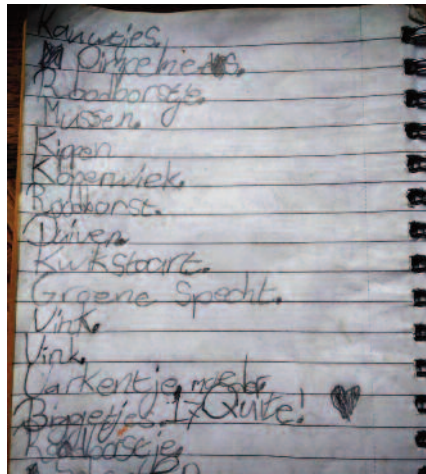 Kauwtjes.
Pimpelmees.
Roodborstje.
Mussen.
Kippen
Koperwiek.
Roodborst.
Duiven.
Kwikstaart.
Groene Specht.
Vink.
Vink.
Varkentje moeder
Biggetjes. 1x Quite!
Roodbostje.